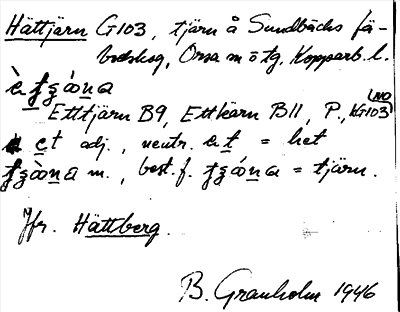 Hättjärn G103, tjärn å Sundbäcks fä-
bodskog, Orsa m ö tg, Kopparb. l.
Ettjärn B9, Ettkärn B11, P., (NO G103)
adj., neutr. = het
m., best. f. = tjärn.
Jfr. Hättberg.
B. Granholm 1946